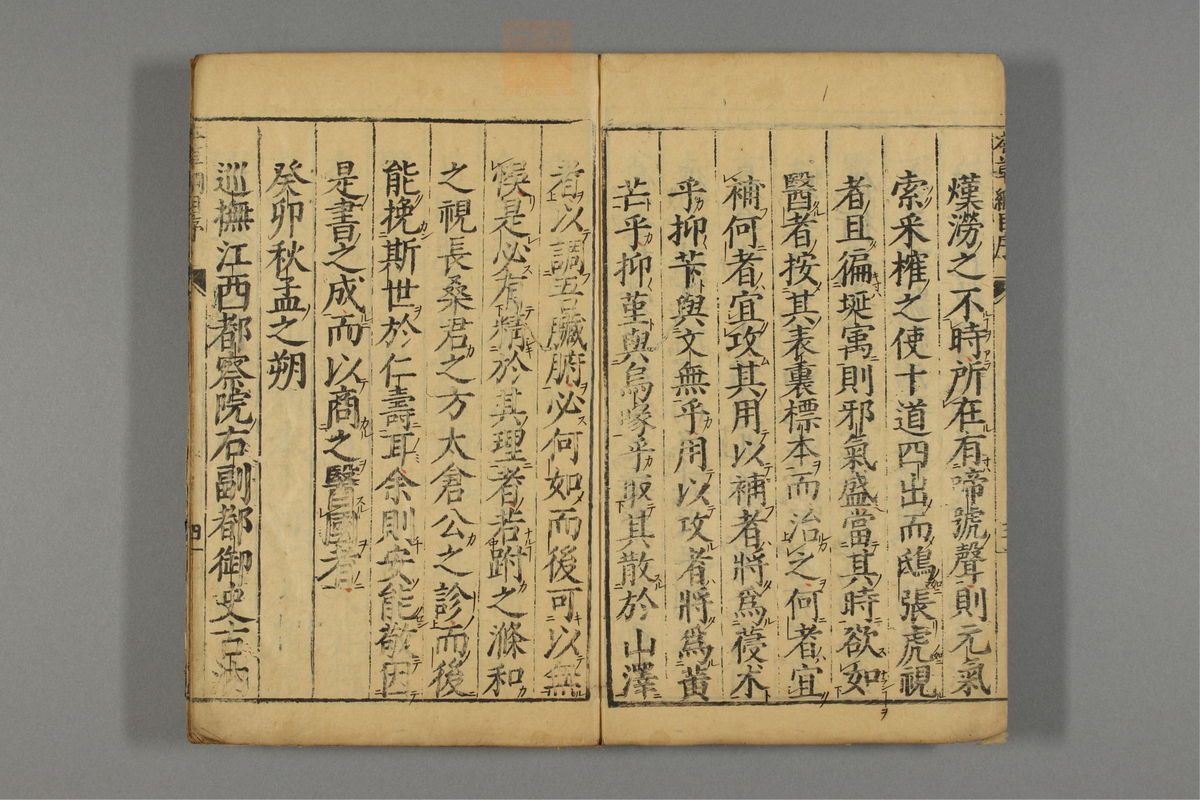 熯澇之不時所在有啼號聲則元氣
索釆榷之使十道四出而鴟張虎視
者且徧埏寓則邪氣盛當其時欲如
醫者按其表裏標本而治之何者宜
補何者宜攻其用以補者將爲葠朮
乎抑芐與文無乎用以攻者將爲黃
芒乎抑堇與烏喙乎取其散於山澤
者以調五臟腑必何如而後可以無
俟是必有精於其理者若跗之滌和
之視長桑君之方太倉公之診而後
能挽斯世於仁壽耳余則安能敬因
是書之成而以商之醫國者
癸卯秋孟之朔
巡撫江西都察院右副都御史古